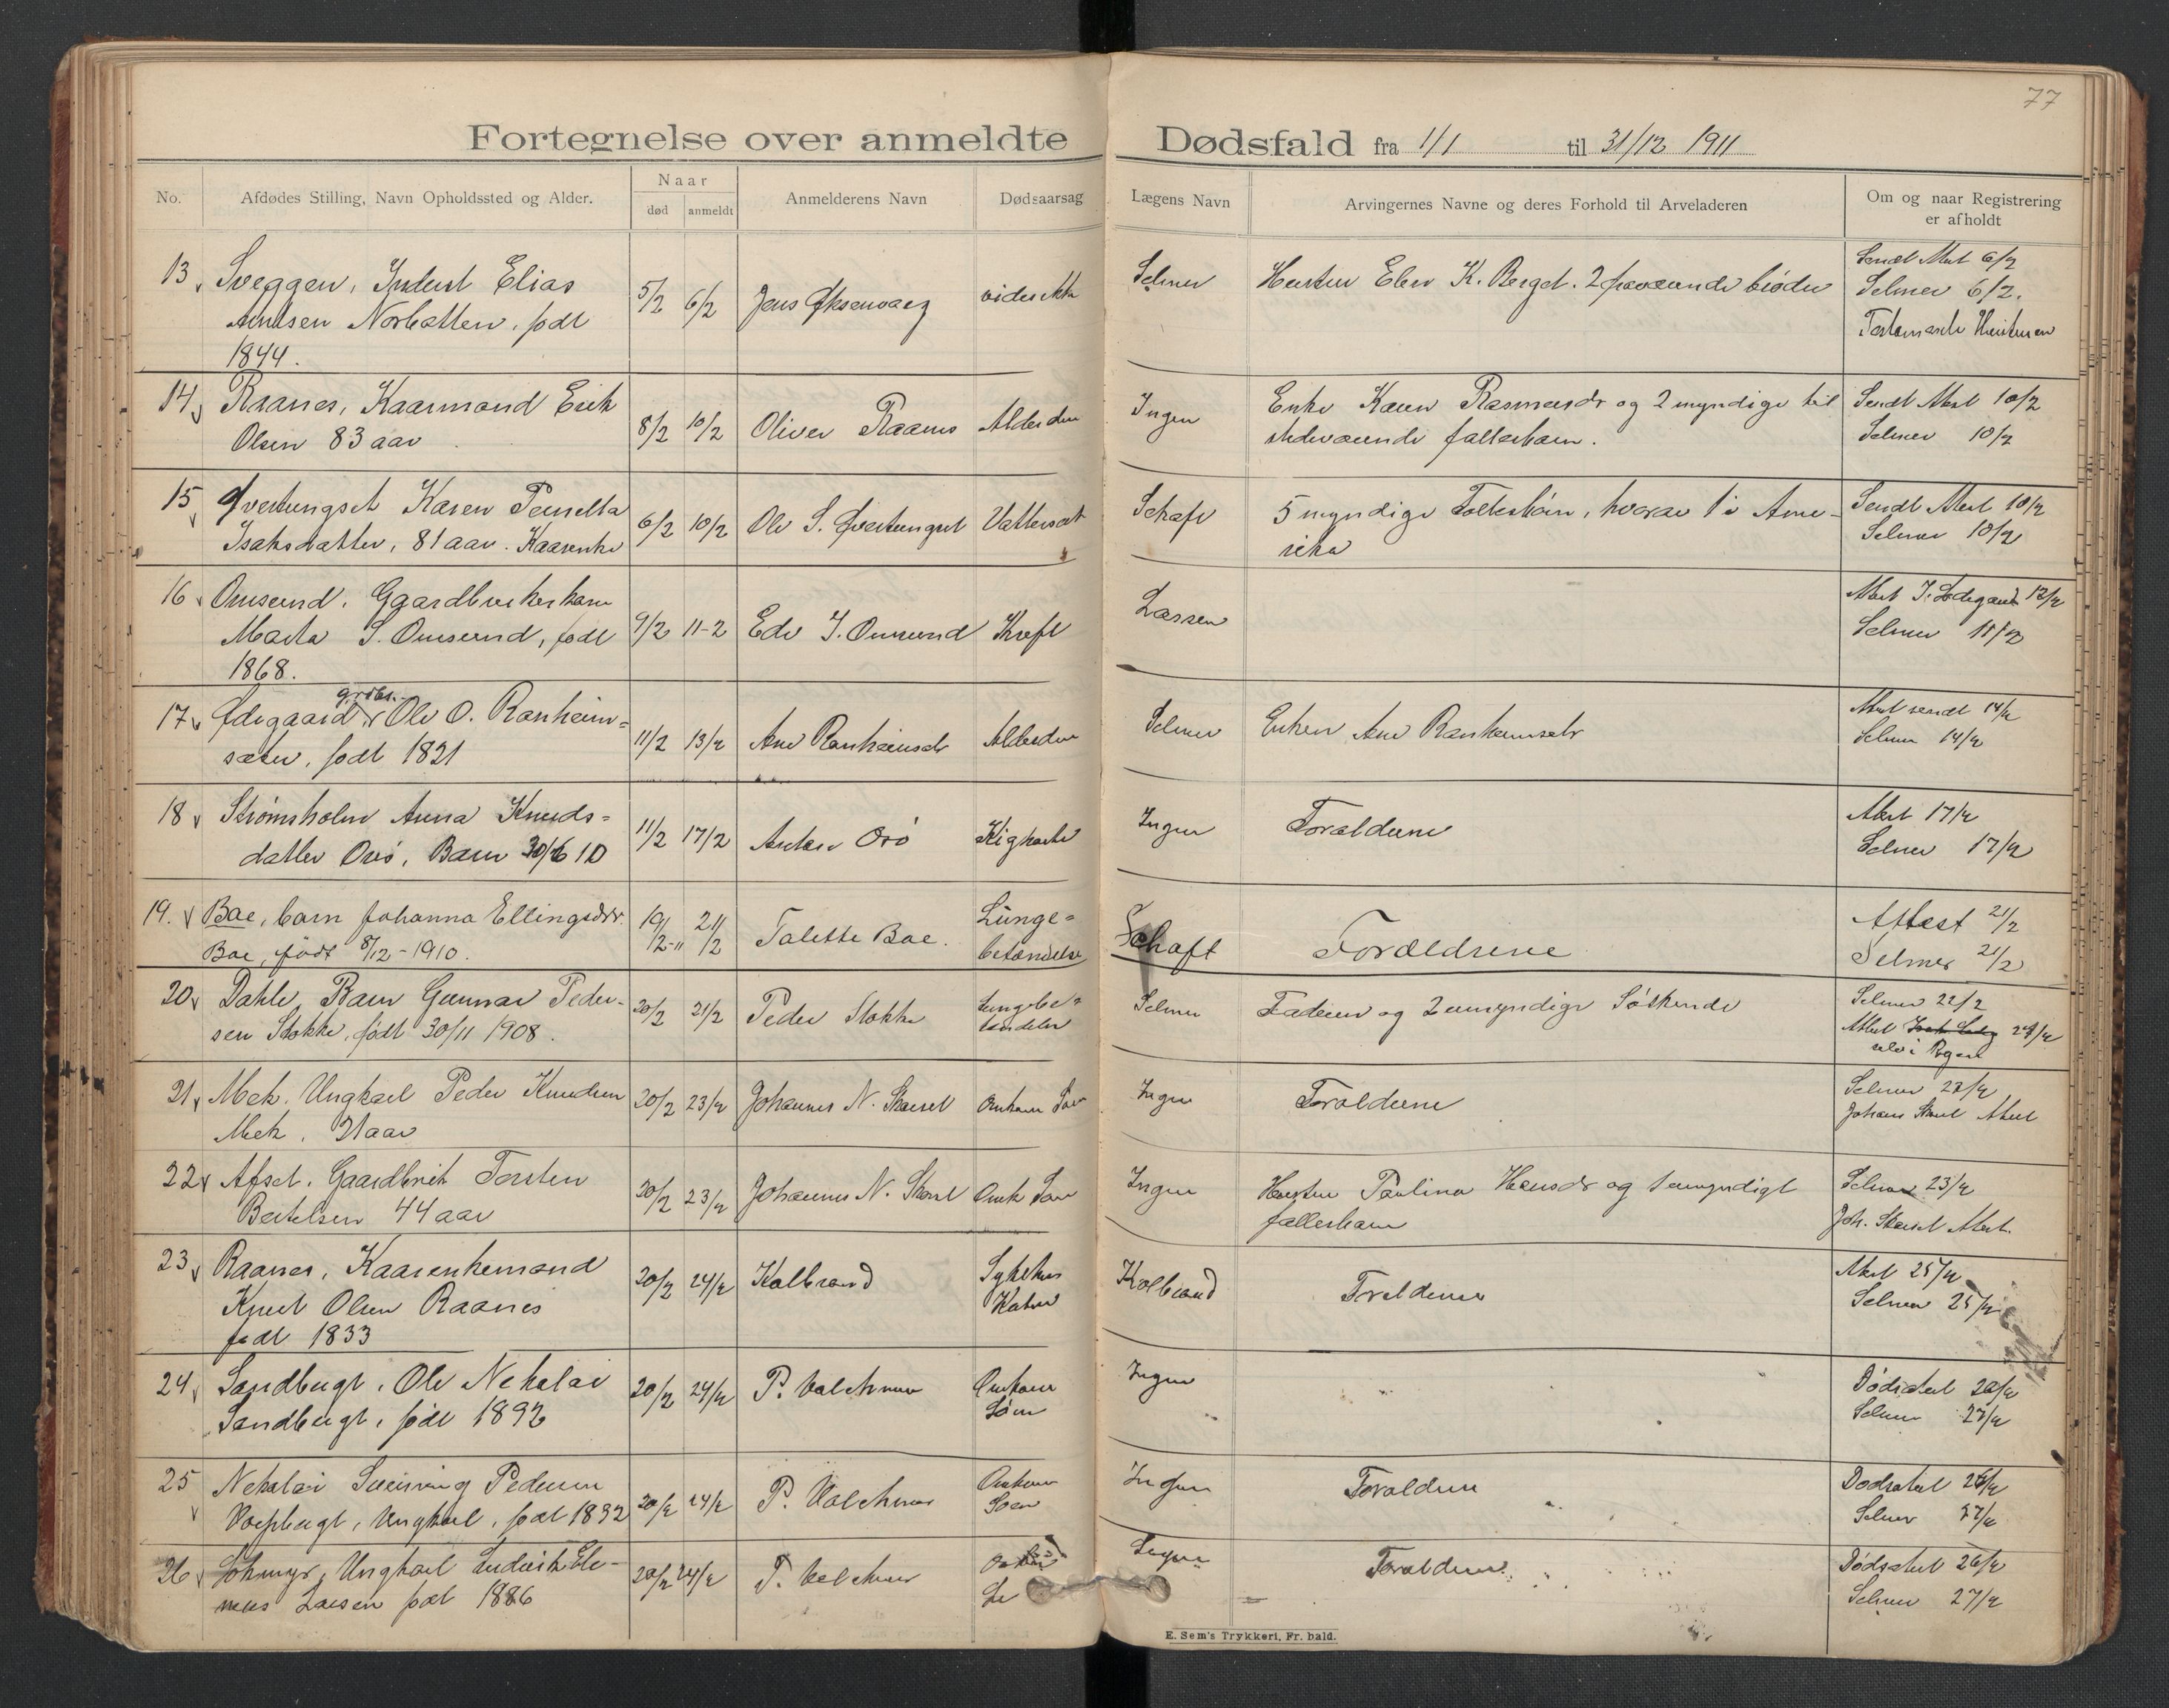 77
Fortegnelse over anmeldte Dødsfald fra 1/1 til 31/12 1911
No.
Afdødes Stilling, Navn Opholdssted og Alder.
Naar
død
anmeldt
Anmelderens Navn
Dødsaarsag
Lægens Navn
Arvingernes Navne og deres Forhold til Arveladeren
Om og naar Registrering
er afholdt
13
Sveggen, Inderst Elias
Norbotten, født
1844.
5/2 6/2
Jens
Selmer
K. Berget. 2
6/2
Selmer 6/2.
14
Raanes, Kaarmand Erik
Olsen 83 aar
8/2 10/2
Oliver Raanes
Alderdom
Ingen
Enke Karen Rasmusdr og 2 myndige til
stedeværende fællesbørn.
Sendt Atest 10/2
Selmer 10/2
15
Karen Pernella
Isaksdatter, 81 aar. Kaarenke
6/2 10/2
Ole S.
Vattersot
Schaft
5 myndige Fællesbørn, hvorav 1 i Ame-
rika
Sendt Atest 10/2
Selmer 10/2
16
Omsund, Gaardbrukerkone
Marta S. Omsund, født
1868.
9/2 11-2
Edv I. Omsund
Kræft
Lassen
Atest 12/2
Selmer 11/2
17
grdbr.
Ødegaard Ole O. Ranheim-
sæter, født 1821
11/2 13/2
Ane Ranheimsetr
Alderdom
Selmer
Enken Ane Ranheimsetr
Atest sendt 14/2
Selmer 14/2
18
Strømsholm Anna Knuds-
datter Orsø, Barn 30/6 10
11/2 17/2
Anton Orø
Kighoste
Ingen
Forældrene
Atest 17/2
Selmer 17/2
19.
Bae, barn Johanna Ellingsdtr.
Bae, født 8/12-1910.
19/2-11 21/2
Talette Bae.
Lunge-
betændelse
Schaft
Forældrene
Attest 21/2
Selmer 21/2
20
Dahle, Barn Gunnar Peder-
sen Stokke, født 30/11 1908.
20/2 21/2
Peder Stokke
Lungebe-
tændelse
Selmer
Faderen og 2 umyndige Søskende
Selmer 22/2
Atest
21
Mek. Ungkarl Peder Knudsen
Mek, 21 aar
20/2 23/2
Johannes N. Skarset
Omkom Søen
Ingen
Forældrene
Selmer 23/2
Johans Skarset Atest
22
Afset. Gaardbruk Torsten
Bertelsen 44 aar
20/2 23/2
Johannes N. Skarset
Omk Søen
Ingen
Hustru Paulina Hansdr og 1 umyndigt
fællesbarn
Selmer 23/2
Joh. Skarset Atest.
23
Raanes, Kaarenkemand
Knut Olsen Raanes
født 1833
20/2 24/2
Kolbrand
Sykehus
Kolbrand
Forældrene
Atest 25/2
Selmer 25/2
24
Sandbugt, Ole Nekolai
Sandbugt, født 1892
20/2 24/2
P.
Omkom
Søen
Ingen
Dødsatest
Selmer 27/2
25
Nekolai Pedersen
Ungkarl, født 1892
20/2 24/2
P.
Omkom
Søen
Ingen
Forældrene
Dødsatest 26/2
Selmer 27/2
26
Ungkarl
Larsen født 1886
20/2 24/2
Ingen
Forældrene
Dødsatest 26/2
Selmer 27/2
E. Sem's Trykkeri, Fr.hald.